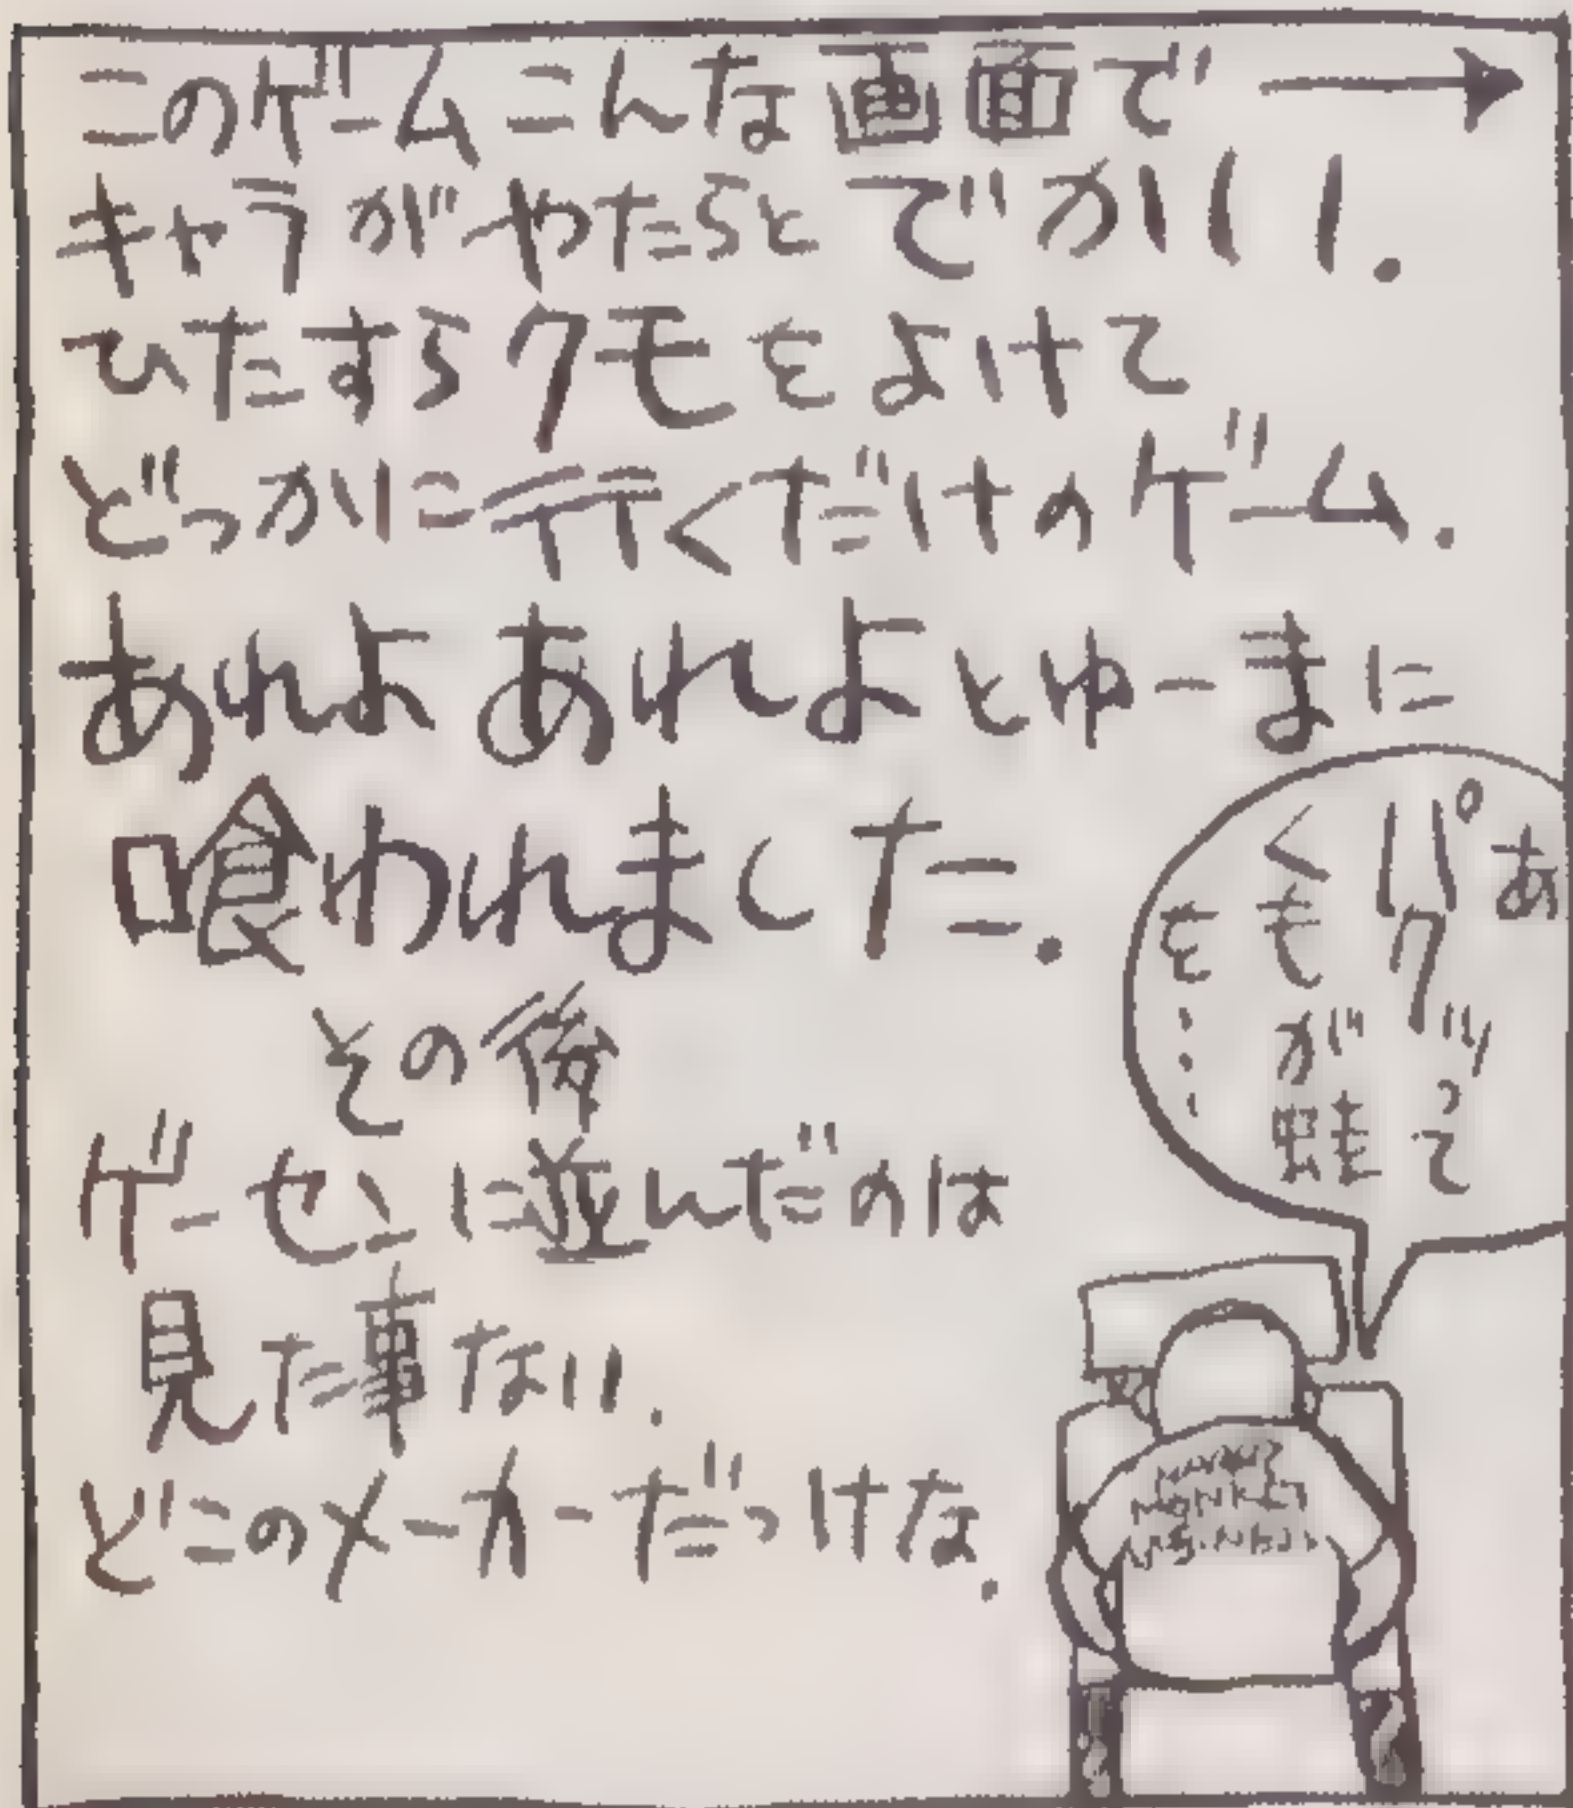 このゲームこんな画面で→
キャラがやたらとでかいい.
ひたすらクモをよけて
どっかに行くだけのゲーム.
あれよあれよとゆーまに
喰われました.
その後
ゲーセンに並んだのは
見た事ない.
どこのメーカーだっけな.
あ
パクッって
くもが蛙
を…
MONKEY